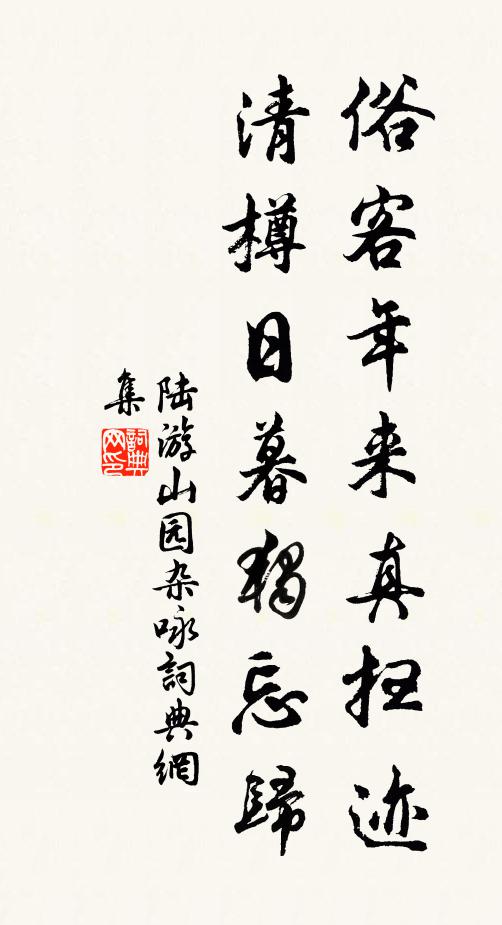 俗客年来真扫迹
清樽日暮獨忘歸
陆游山园杂咏詞典網
集
詞典网印